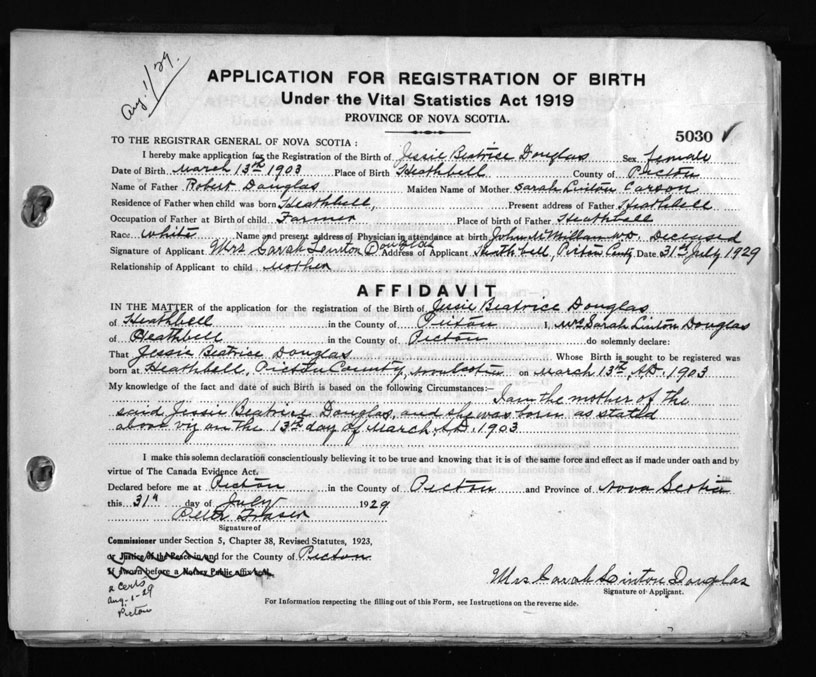 Aug. 1/29.
APPLICATION FOR REGISTRATION OF BIRTH
Under the Vital Statistics Act 1919
PROVINCE OF NOVA SCOTIA.
5030 ✓
TO THE REGISTRAR GENERAL OF NOVA SCOTIA:
I hereby make application for the Registration of the Birth of Jessie Beatrice Douglas Sex female
Date of Birth March 13th 1903 Place of Birth Heathbell County of Pictou
Name of Father Robert Douglas Maiden Name of Mother Sarah Linton Carson
Residence of Father when child was born Heathbell, Present address of Father Heathbell
Occupation of Father at Birth of child Farmer Place of birth of Father Heathbell
Race White Name and present address of Physician in attendance at birth John McMillan M.D. Deceased
Signature of Applicant Mrs Sarah Linton Douglas Address of Applicant Heathbell, Pictou County Date 31st July 1929
Relationship of Applicant to child Mother
AFFIDAVIT
IN THE MATTER of the application for the registration of the Birth of Jessie Beatrice Douglas
of Heathbell in the County of Pictou I, Mrs Sarah Linton Douglas
of Heathbell in the County of Pictou do solemnly declare:
That Jessie Beatrice Douglas Whose Birth is sought to be registered was
born at Heathbell, Pictou County, Nova Scotia on March 13th, A.D. 1903
My knowledge of the fact and date of such Birth is based on the following Circumstances:— I am the mother of the
said Jessie Beatrice Douglas, and she was born as stated
above viz on the 13th day of March A.D. 1903.
I make this solemn declaration conscientiously believing it to be true and knowing that it is of the same force and effect as if made under oath and by
virtue of The Canada Evidence Act.
Declared before me at Pictou in the County of Pictou and Province of Nova Scotia
this 31st day of July 1929
Fraser
Signature of
Commissioner under Section 5, Chapter 38, Revised Statutes, 1923,
or Justice of the Peace in and for the County of Pictou
If sworn before a Notary Public affix seal.
2 certs
Aug-1-29
Pictou
Mrs Sarah Linton Douglas
Signature of Applicant.
For Information respecting the filling out of this Form, see Instructions on the reverse side.